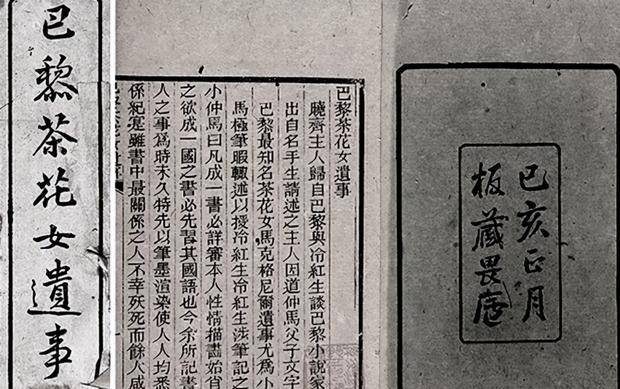 巴黎茶花女遺事
巴黎茶花女遺事
曉齋主人歸自巴黎與冷紅生談巴黎小說家
出自名手生請述之主人因道仲馬父子文字
巴黎最知名茶花女馬克格尼爾遺事尤爲小
馬極筆暇輒述以授冷紅生冷紅生涉筆記之
小仲馬曰凡成一書必詳審本人性情描畫始肖
之欲成一國之書必先習其國語也今余所記書
人之事爲時未久特先以筆墨渲染使人人均悉
係紀實雖書中最關係之人不幸殀死而餘人咸
己亥正月
板藏畏廬